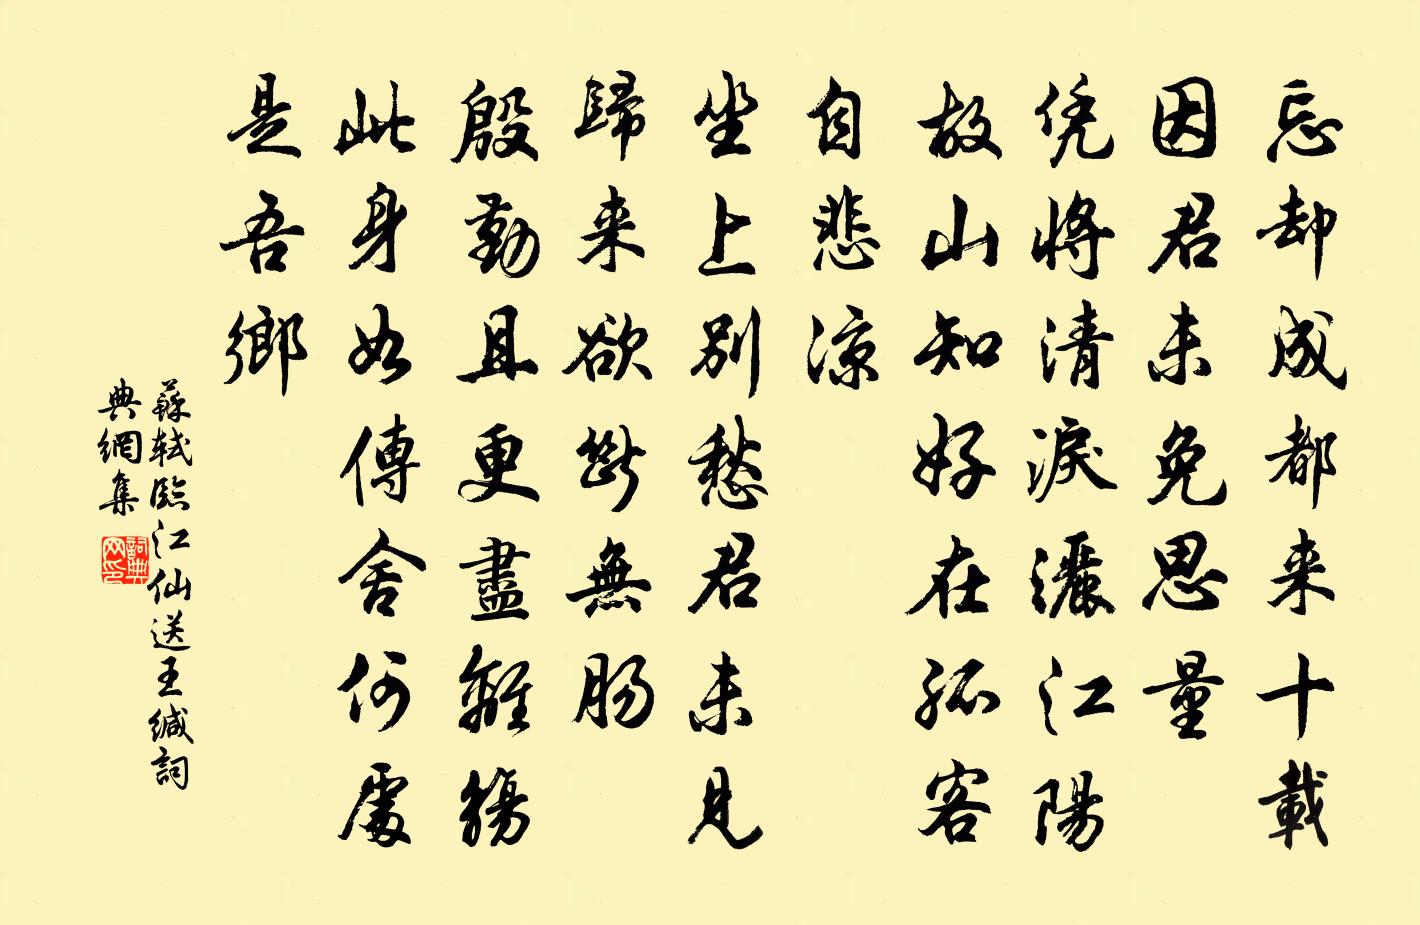 忘却成都来十載
因君未免思量
凭將清淚灑江陽
故山知好在孤客
自悲涼
坐上別愁君未見
歸来欲斷無腸
殷勤且更盡離觴
此身如傳舍何處
是吾鄉
蘇軾臨江仙送王緘詞
典網集
詞典網印